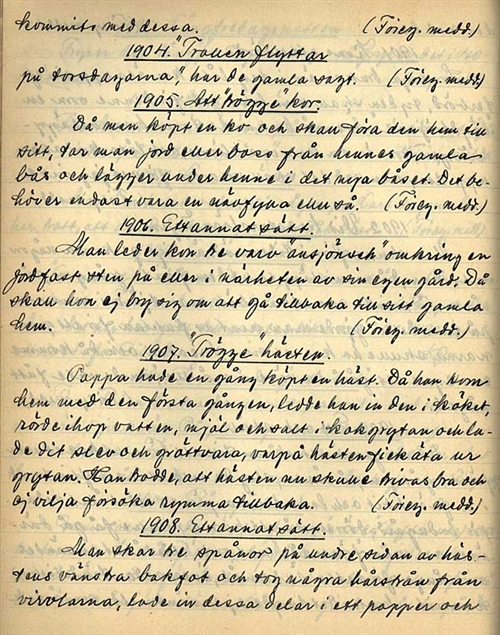 kommits med dessa. (Föreg. medd.)
1904. "Trollen flyttar
på torsdagarna," har de gamla sagt. (Föreg. medd.)
1905. Att "tögge" kor.
Då man köpt en ko och skall föra den hem till
sitt, tar man jord eller boss från hennes gamla
bås och lägger under henne i det nya båset. Det be-
höver endast vara en nävfylla eller så. (Föreg. medd.)
1906. Ett annat sätt.
Man leder kon tre varv "ansjönsch" omkring en
jordfast sten på eller i närheten av sin egen gård. Då
skall hon ej bry sig om att gå tillbaka till sitt gamla
hem. (Föreg. medd.)
1907. "Trögge" hästen.
Pappa hade en gång köpt en häst. Då han kom
hem med den första gången, ledde han in den i köket,
rörde ihop vatten, mjöl och salt i kokgrytan och la-
de dit slev och gröttvara, varpå hästen fick äta ur
grytan. Han trodde, att hästen nu skulle trivas bra och
ej vilja försöka rymma tillbaka. (Föreg. medd.)
1908. Ett annat sätt.
Man skar tre spånor på undre sidan av häs-
tens vänstra bakfot och tog några hårstrån från
virvlarna, lade in dessa delar i ett papper och